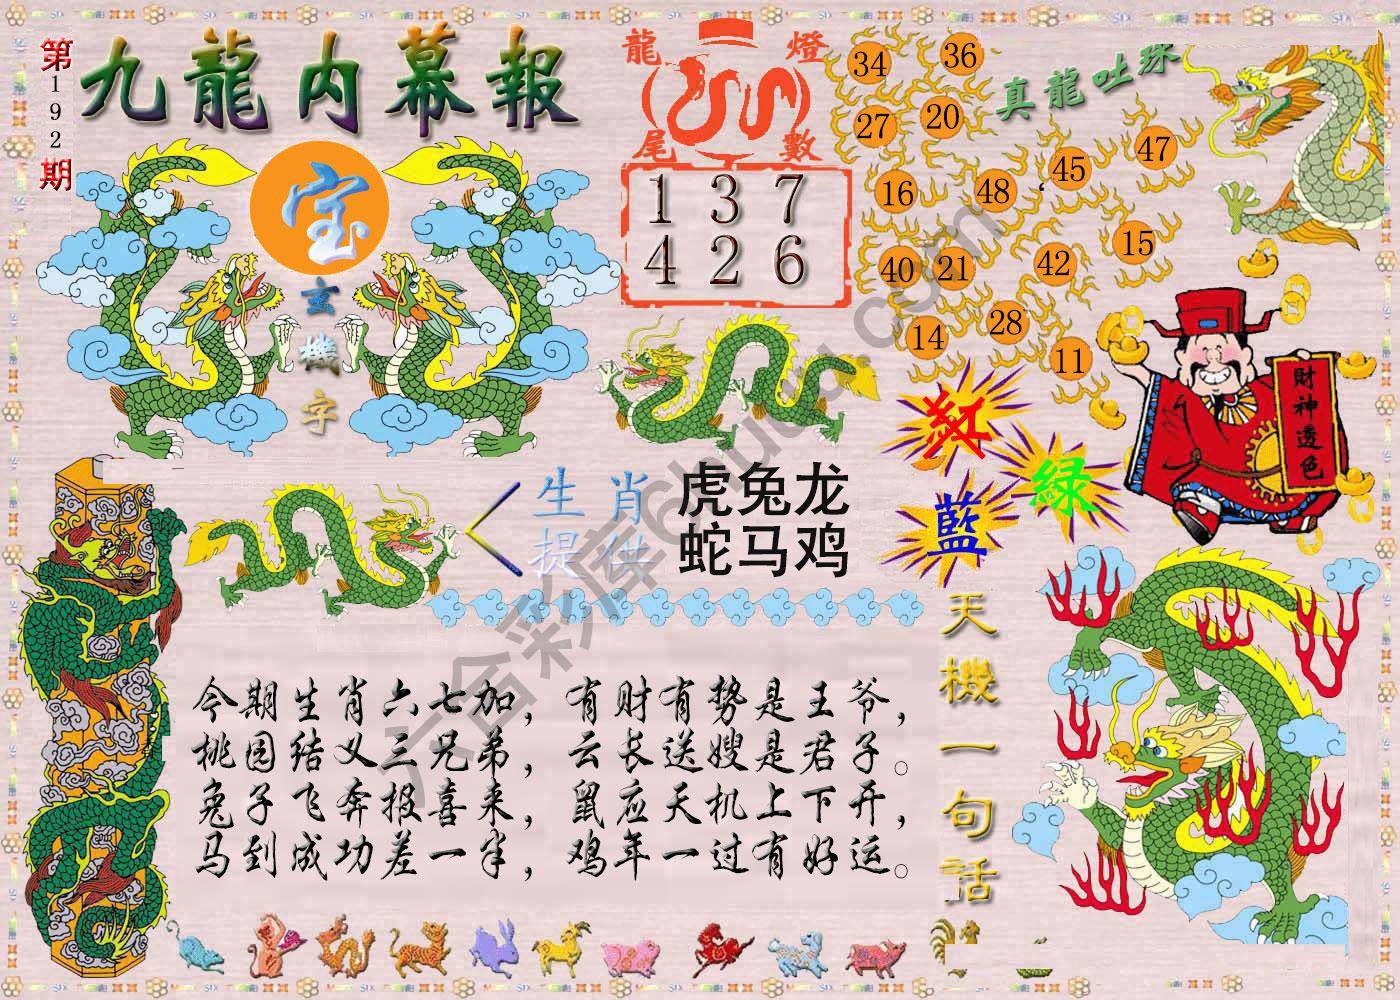 第192期
九龍內幕報
宝
玄機字
龍燈
尾數
1 3 7
4 2 6
真龍吐珠
34
36
27
20
16
48
45
47
40
21
42
15
14
28
11
財神透色
紅
綠
藍
生肖
提供
虎兔龙
蛇马鸡
天機一句話
今期生肖六七加，有财有势是王爷，
桃园结义三兄弟，云长送嫂是君子。
兔子飞奔报喜来，鼠应天机上下开，
马到成功差一半，鸡年一过有好运。